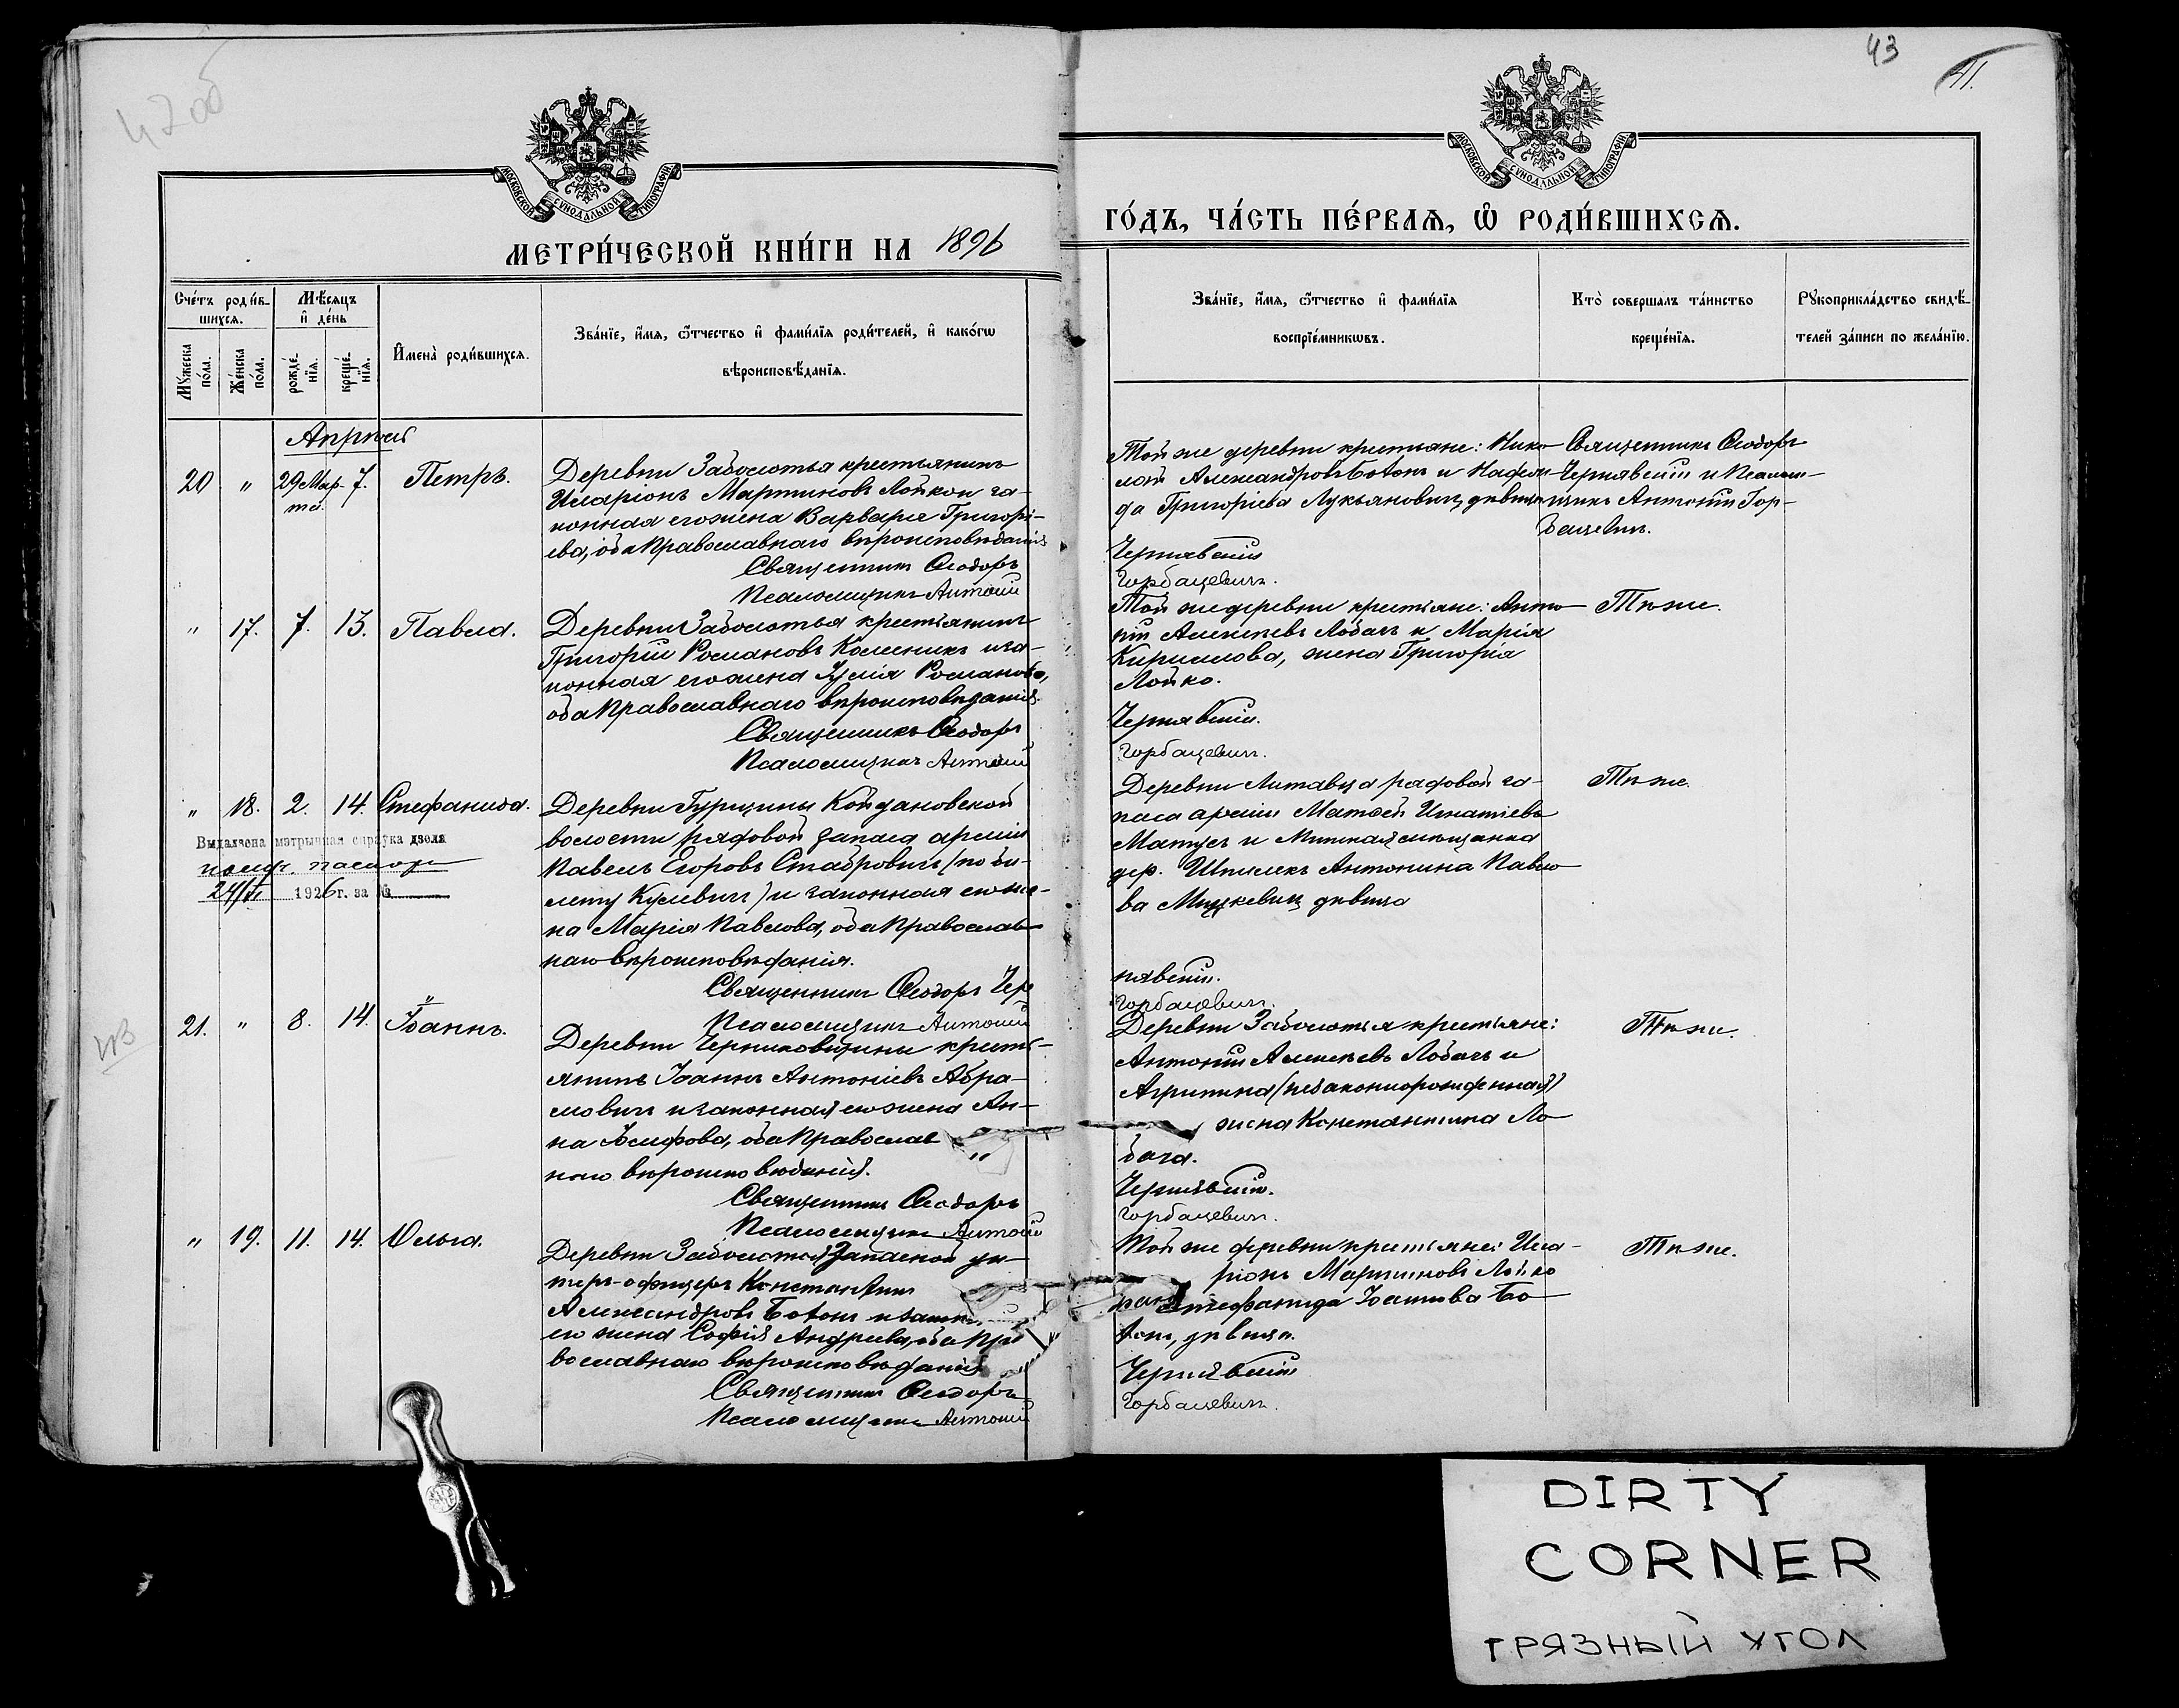 42 об
43
41.
МОСКОВСКОЙ СѴНОДАЛЬНОЙ ТИПОГРАФІИ
МОСКОВСКОЙ СѴНОДАЛЬНОЙ ТИПОГРАФІИ
МЕТРИ́ЧЕСКОЙ КНИ́ГИ НА 1896
ГО́ДЪ, ЧА́СТЬ ПЕ́РВАѦ, Ѡ҆ РОДИ́ВШИХСѦ.
Сче́тъ роди́в-
шихсѧ.
Мꙋ́жеска по́ла.
Же́нска по́ла.
Мѣ́сѧцъ и҆ де́нь
рожде́-нїѧ.
креще́-нїѧ.
И҆мена̀ роди́вшихсѧ.
Зва́нїе, и҆́мѧ, ѻ҆́тчество и҆ фами́лїѧ роди́телей, и҆ како́гѡ
вѣроисповѣ́данїѧ.
Зва́нїе, и҆́мѧ, ѻ҆́тчество и҆ фами́лїѧ
воспрїе́мникѡвъ.
Кто̀ соверша́лъ та́инство
креще́нїѧ.
Рꙋкоприкла́дство свидѣ́-
телей за́писи по жела́нїю.
Апрѣль
20 " 29 Мар- 7. Петръ.
та.
Деревни Заболотья крестьянинъ
Иларіонъ Мартиновъ Лойко и за-
конная его жена Варвара Григорі-
ева, оба Православнаго вѣроисповѣданія
Священникъ Ѳеодоръ
Псаломщикъ Антоній
Той же деревни крестьяне: Нико-
лай Александровъ Ботянъ и
да Григоріева Лукьяновичъ, дѣвица
Чернявскій
Горбацевичъ.
Священникъ Ѳеодоръ
Чернявскій и Псалом-
щикъ Антоній Гор-
бацевичъ.
" 17. 7. 13. Павла.
Деревни Заболотья крестьянинъ
Григорій Романовъ Колесникъ и за-
конная его жена Юлія Романова,
оба Православнаго вѣроисповѣданія.
Священникъ Ѳеодоръ
Псаломщикъ Антоній
Той же деревни крестьяне: Анто-
ній Алексѣевъ Лобачъ и Марія
Кириллова, жена Григорія
Лойко.
Чернявскій.
Горбацевичъ.
Тѣ же.
" 18. 2. 14. Стефанида.
Выдадзена мэтрычная спраўка дзеля
1926 г. за №
Деревни Гурщины Койдановской
волости рядовой запаса арміи
Павелъ Егоровъ Стабровичъ (по би-
лету Кулевич) и законная его же-
на Марія Павлова, оба Православ-
наго вѣроисповѣданія.
Священникъ Ѳеодоръ Чер
Псаломщикъ Антоній
Деревни Литавца рядовой за-
паса арміи Матѳей Игнатіевъ
Матусъ и Минская мѣщанка
дер. Шпилекъ Антонина Павло-
ва Мицкевич дѣвица
нявскій.
Горбацевичъ.
Тѣ же.
21. " 8. 14. Іоаннъ.
Деревни Черниковщины кресть-
янинъ Іоаннъ Антоніевъ Абра-
мовичъ и законная его жена Ан-
на Іосифова, оба Православ
наго вѣроисповѣданія.
Священникъ Ѳеодоръ
Псаломщикъ Антоній
Деревни Заболотья крестьяне:
Антоній Алексѣевъ Лобачъ и
Агрипина (незаконнорожденная)
жена Константина Ло-
бача.
Чернявскій.
Горбацевичъ.
Тѣ же.
" 19. 11. 14. Ольга.
Деревни Заболотья Запасной ун-
теръ-офицеръ Константинъ
Александровъ Ботянъ и закон
его жена Софія Андреева, оба Пра
вославнаго вѣроисповѣданія
Священникъ Ѳеодоръ
Псаломщикъ Антоній
Той же деревни крестьяне: Ила-
ріонъ Мартиновъ Лойко
Стефанида Іоаннова Бо-
тянъ, дѣвица.
Чернявскій
Горбацевичъ.
Тѣ же.
DIRTY
CORNER
ГРЯЗНЫЙ УГОЛ